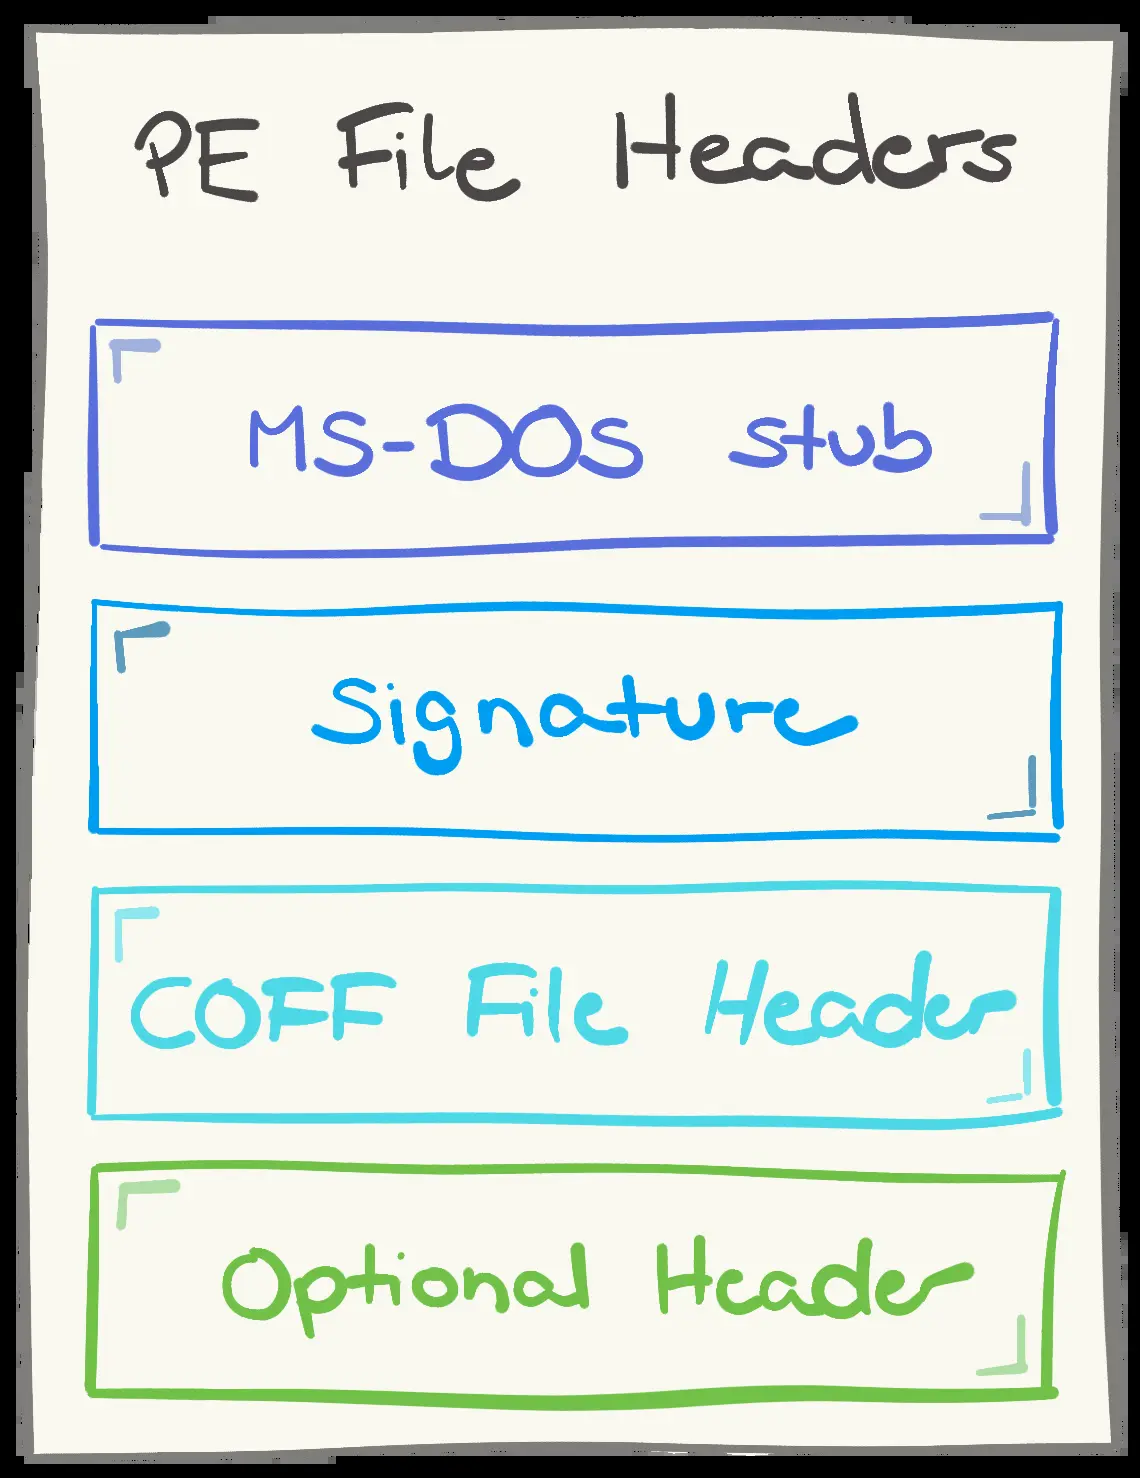 PE File Headers
MS-DOS stub
Signature
COFF File Header
Optional Header